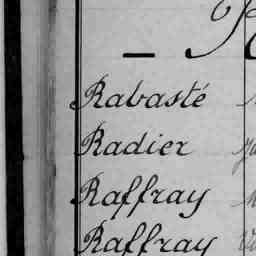 R
Rabasté
Radier
Raffray
Raffray